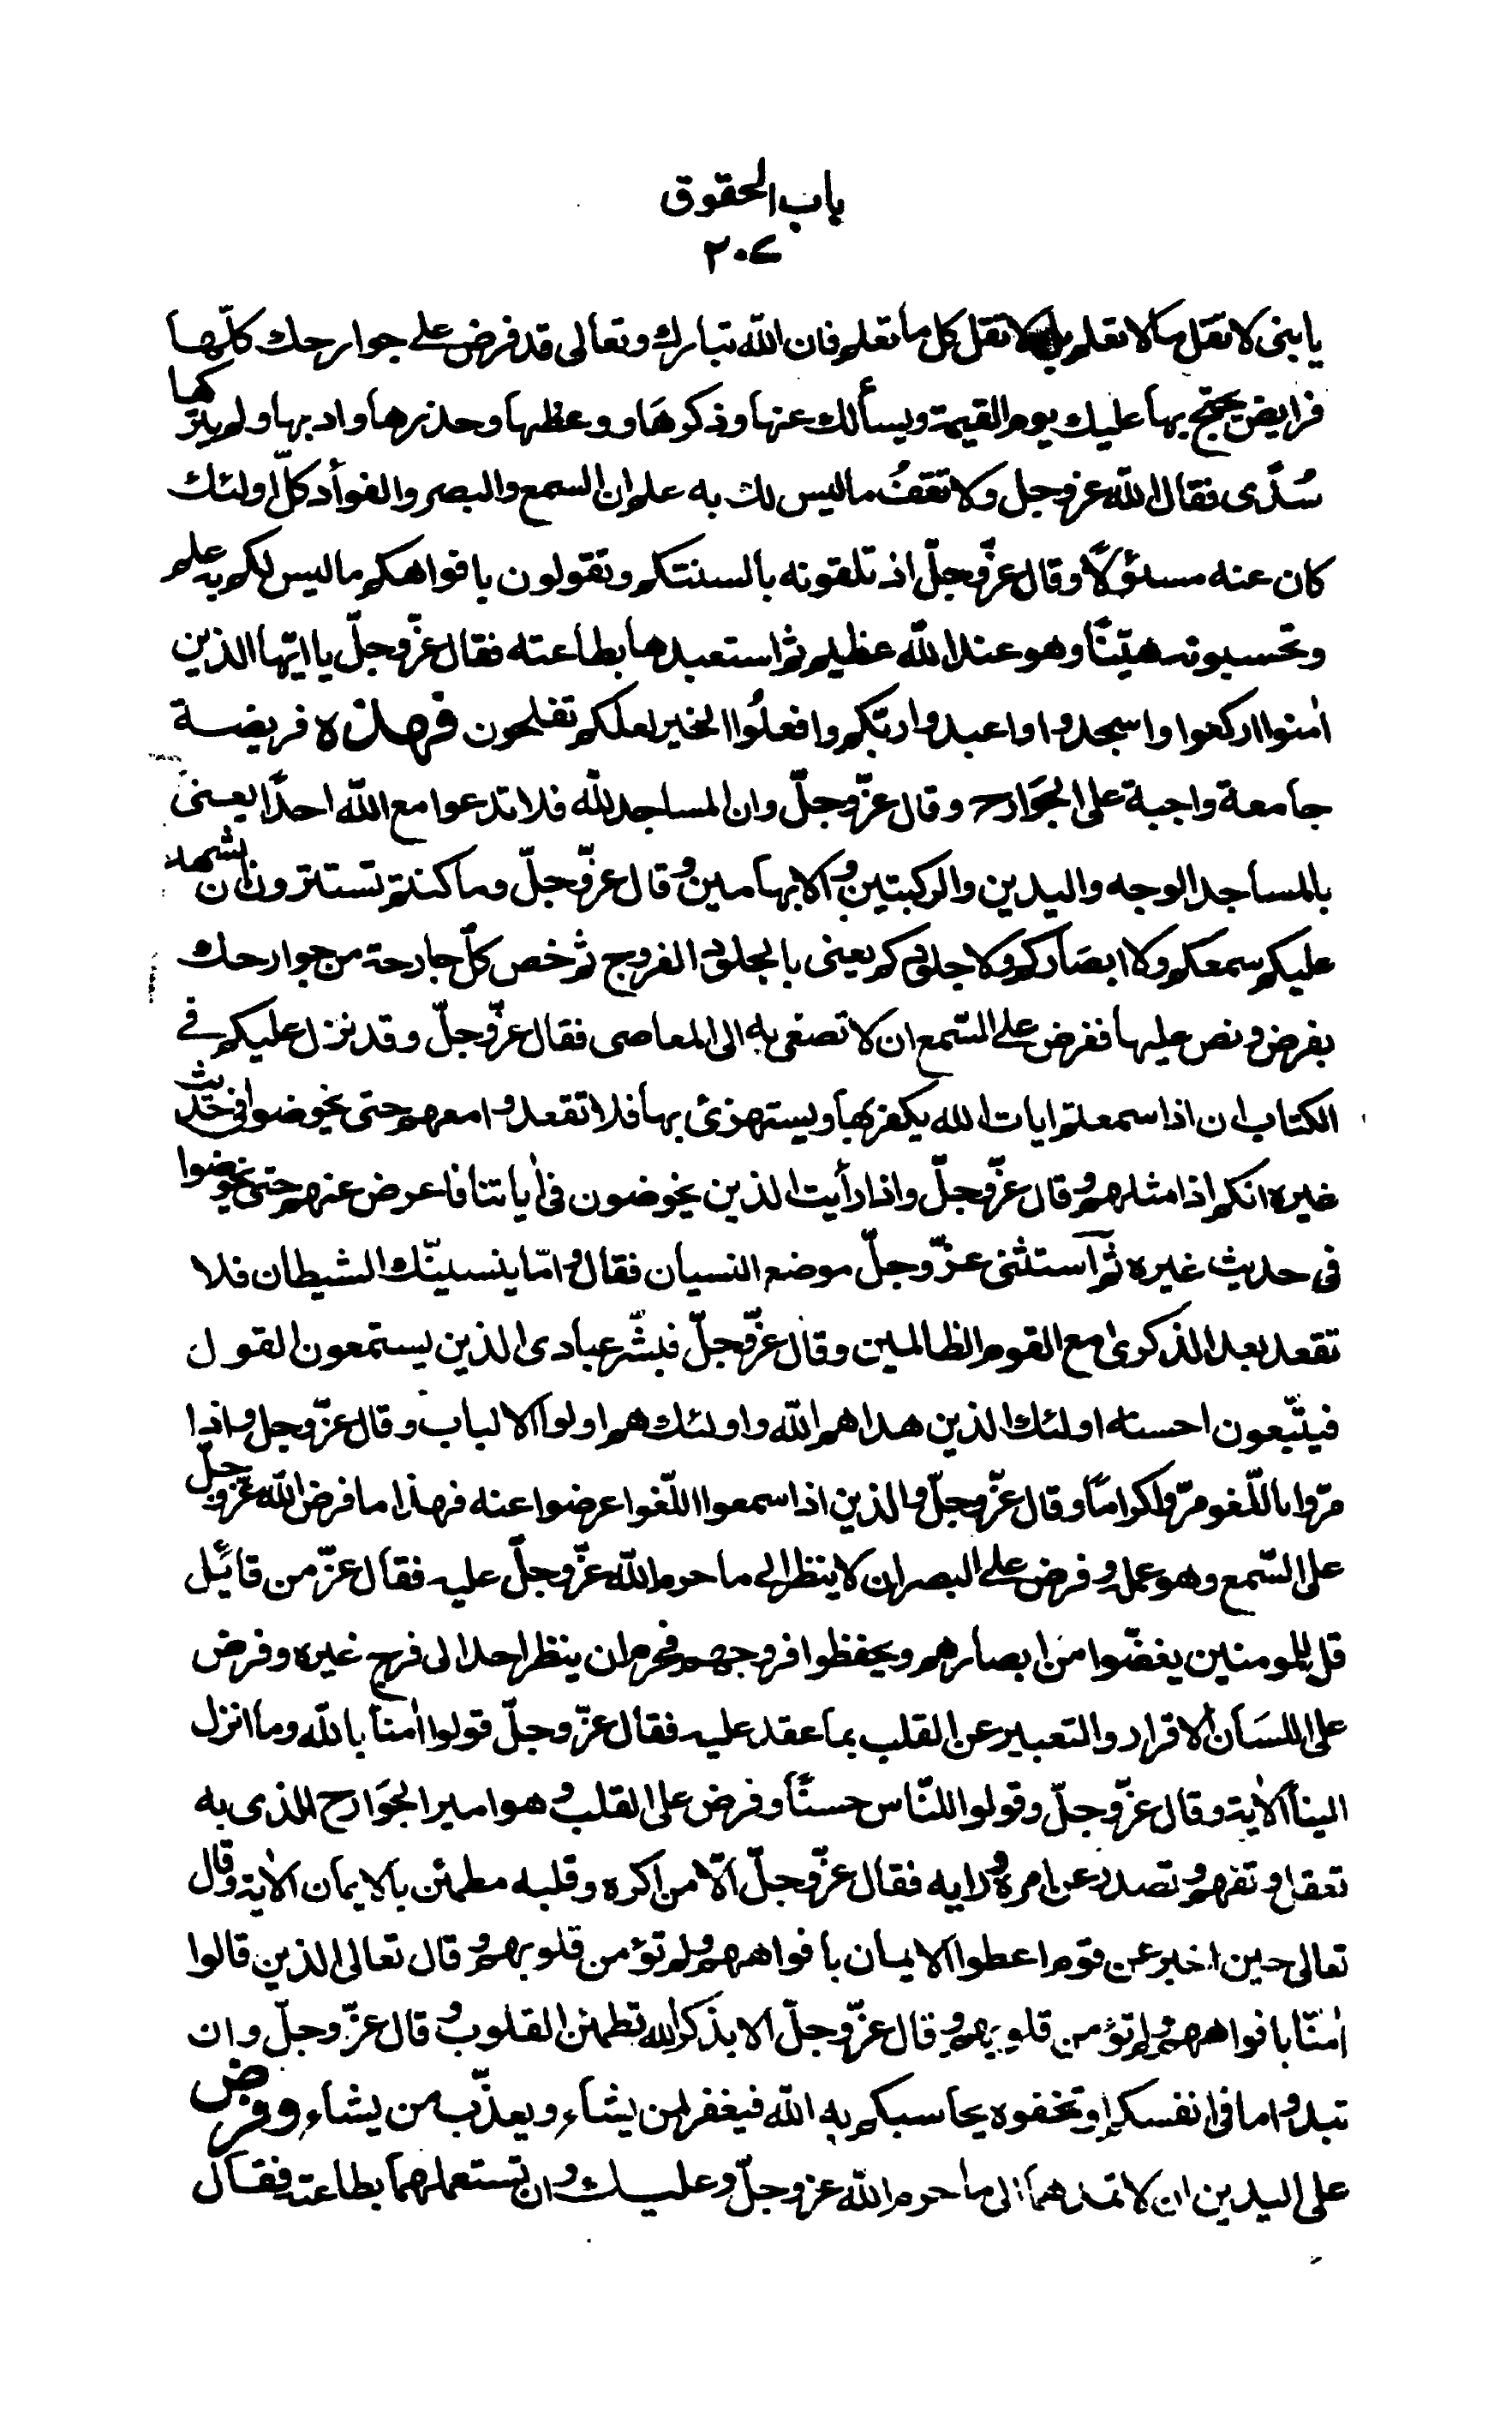 باب الحقوق
٢٠٧
يا بنى لا تقل ما لا تعلم بل لا تقل كل ما تعلم فان الله تبارك وتعالى قد فرض على جوارحك كلّها
فرايض يحتج بها عليك يوم القيمة ويسألك عنها وذكرها ووعظها وحذرها وادبها ولم يتركها
سُدًى فقال الله عز وجل ولا تقفُ ما ليس لك به علم ان السمع والبصر والفوأد كلّ اولئك
كان عنه مسئولاً وقال عزّ وجلّ اذ تلقونه بالسنتكم وتقولون بافواهكم ما ليس لكم به علم
وتحسبونه هيّنًا وهو عند الله عظيم ثم استعبدها بطاعته فقال عزّ وجلّ يا ايّها الذين
اٰمنوا اركعوا واسجدوا واعبدوا ربّكم وافعلُوا الخير لعلكم تفلحون فهذه فريضة
جامعة واجبة على الجَوارح وقال عزّ وجلّ وان المساجد لله فلا تدعوا مع الله احدًا يعنى
بالمساجد الوجه واليدين والركبتين والابهامين وقال عزّ وجلّ وما كنتم تستترون ان يشهد
عليكم سمعكم ولا ابصَاركم ولا جلودكم يعنى بالجلود الفروج ثم خص كلّ جارحة من جوارحك
بفرض ونص عليها ففرض على السّمع ان لا تصغى به الى المعاصى فقال عزّ وجلّ وقد نزل عليكم فى
الكتاب ان اذا سمعتم ايات الله يكفر بها ويستهزئ بها فلا تقعدوا معهم حتى يخوضوا فى حديث
غيره انكم اذا مثلهم وقال عزّ وجلّ واذا رأيت الذين يخوضون فى اٰياتنا فاعرض عنهم حتى يخوضوا
فى حديث غيره ثم استثنى عزّ وجلّ موضع النسيان فقال وامّا ينسينّك الشيطان فلا
تقعد بعد الذكرىٰ مع القوم الظالمين وقال عزّ وجلّ فبشّر عبادى الذين يستمعون القول
فيتّبعون احسنه اولئك الذين هداهم الله واولئك هم اولوا الالباب وقال عزّ وجل واذا
مرّوا باللّغو مرّوا كرامًا وقال عزّ وجلّ والذين اذا سمعوا اللّغو اعرضوا عنه فهذا ما فرض الله عزّ وجلّ
على السّمع وهو عمله وفرض على البصر ان لا ينظر الى ما حرم الله عزّ وجلّ عليه فقال عزّ من قائل
قل للمومنين يغضّوا من ابصارهم ويحفظوا فروجهم فحرم ان ينظر احد الى فرج غيره وفرض
على اللسَان الاقرار والتعبير عن القلب بما عقد عليه فقال عزّ وجلّ قولوا اٰمنا بالله وما انزل
الينا الاٰية وقال عزّ وجلّ وقولوا للنّاس حسنًا وفرض على القلب وهو امير الجَوارح الذى به
تعقل وتفهم وتصدر عن امره ورايه فقال عزّ وجلّ الّا من اكره وقلبه مطمئن بالايمان الاٰية وقال
تعالى حين اخبر عن قوم اعطوا الايمان بافواههم ولم تؤمن قلوبهم وقال تعالى الذين قالوا
اٰمنّا بافواههم ولم تؤمن قلوبهم وقال عزّ وجلّ الا بذكر الله تطمئن القلوب وقال عزّ وجلّ وان
تبدوا ما فى انفسكم او تخفوه يحاسبكم به الله فيغفر لمن يشاء ويعذّب من يشاء وفرض
على اليدين ان لا تمدهما الى ما حرم الله عز وجلّ عليك وان تستعملهما بطاعته فقال